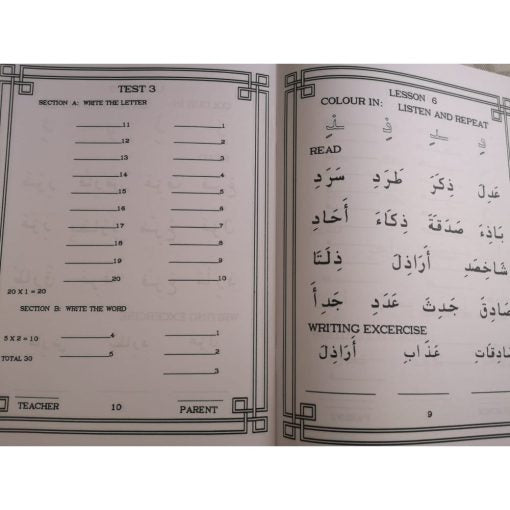 TEST 3
SECTION A: WRITE THE LETTER
11 1
12 2
13 3
14 4
15 5
16 6
17 7
18 8
19 9
20 10
20 X 1 = 20
SECTION B: WRITE THE WORD
5 X 2 = 10 4 1
TOTAL 30 5 2
3
TEACHER 10 PARENT
LESSON 6
COLOUR IN: LISTEN AND REPEAT
READ
عَدِلَ ذِكَرَ طَرَدِ سَرَدِ
بَاذِءَ صَدَقَةَ ذِكَاءَ أَحَادِ
أَرَاذِلَ ذِلَتَا
صَادِقَ جَدِثَ عَدَدِ جَدِأَ
WRITING EXCERCISE
عَذَابِ أَرَاذِلَ
9